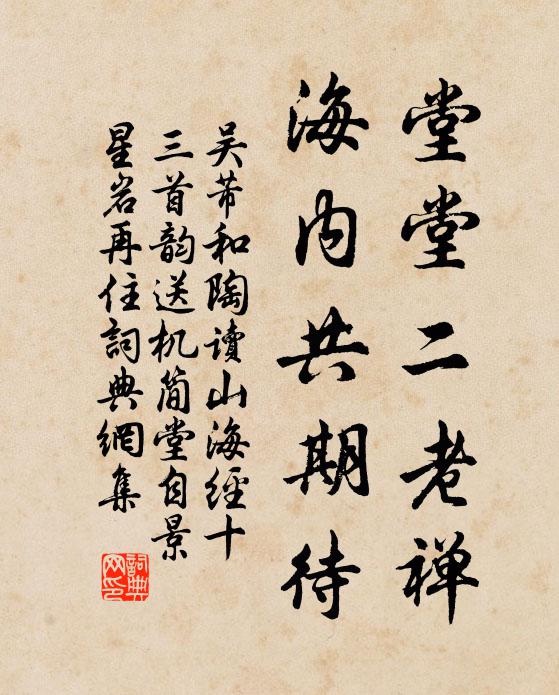 堂堂二老禅
海内共期待
吴芾和陶读山海經十
三首韵送机简堂自景
星岩再住詞典網集
詞典
网印